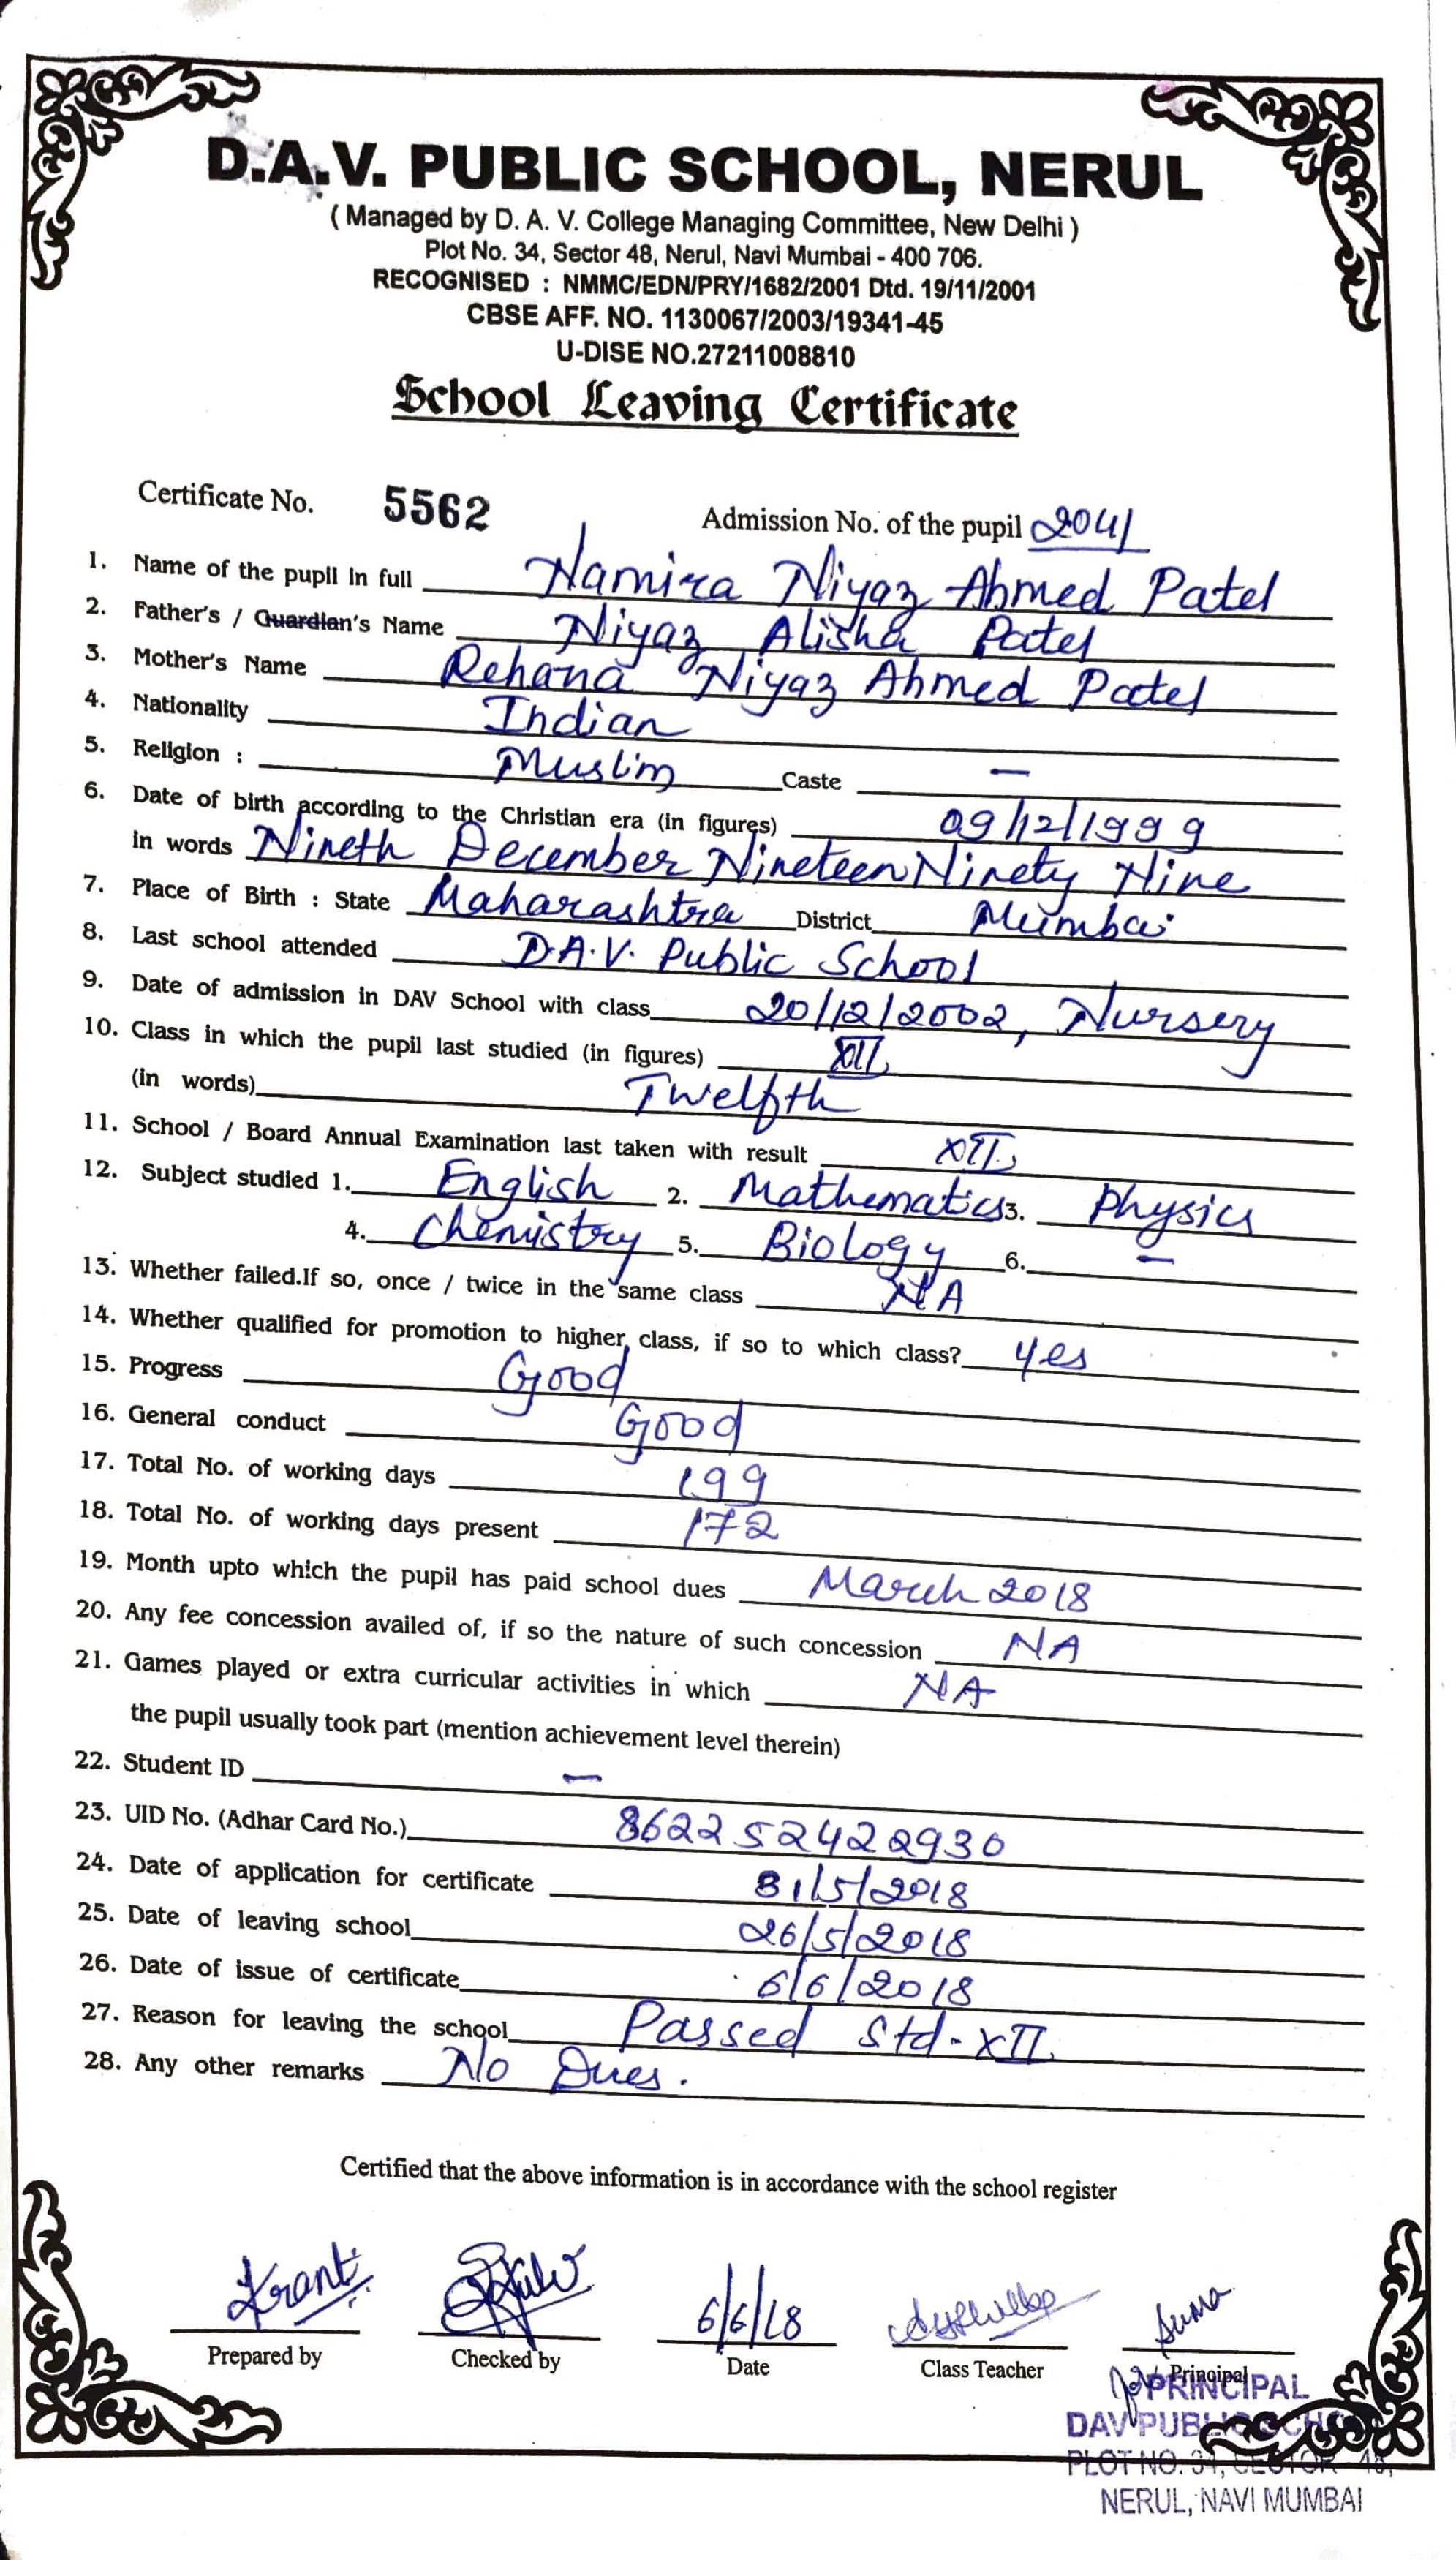 D.A.V. PUBLIC SCHOOL, NERUL
( Managed by D. A. V. College Managing Committee, New Delhi )
Plot No. 34, Sector 48, Nerul, Navi Mumbai - 400 706.
RECOGNISED : NMMC/EDN/PRY/1682/2001 Dtd. 19/11/2001
CBSE AFF. NO. 1130067/2003/19341-45
U-DISE NO.27211008810
School Leaving Certificate
Certificate No. 5562 Admission No. of the pupil 2041
1. Name of the pupil in full Namira Niyaz Ahmed Patel
2. Father's / Guardian's Name Niyaz Alisha Patel
3. Mother's Name Rehana Niyaz Ahmed Patel
4. Nationality Indian
5. Religion : Muslim Caste —
6. Date of birth according to the Christian era (in figures) 09/12/1999
in words Nineth December Nineteen Ninety Nine
7. Place of Birth : State Maharashtra District Mumbai
8. Last school attended D.A.V. Public School
9. Date of admission in DAV School with class 20/12/2002, Nursery
10. Class in which the pupil last studied (in figures) XII
(in words) Twelfth
11. School / Board Annual Examination last taken with result XII
12. Subject studied 1. English 2. Mathematics 3. Physics
4. Chemistry 5. Biology 6. —
13. Whether failed.If so, once / twice in the same class NA
14. Whether qualified for promotion to higher class, if so to which class? yes
15. Progress Good
16. General conduct Good
17. Total No. of working days 199
18. Total No. of working days present 172
19. Month upto which the pupil has paid school dues March 2018
20. Any fee concession availed of, if so the nature of such concession NA
21. Games played or extra curricular activities in which NA
the pupil usually took part (mention achievement level therein)
22. Student ID —
23. UID No. (Adhar Card No.) 862252422930
24. Date of application for certificate 31/5/2018
25. Date of leaving school 26/5/2018
26. Date of issue of certificate 6/6/2018
27. Reason for leaving the school Passed Std-XII
28. Any other remarks No Dues.
Certified that the above information is in accordance with the school register
Krant 6/6/18 Suma
Prepared by Checked by Date Class Teacher Principal
PRINCIPAL
DAV PUBLIC SCHO
PLOT NO. 34, SECTOR - 48,
NERUL, NAVI MUMBAI